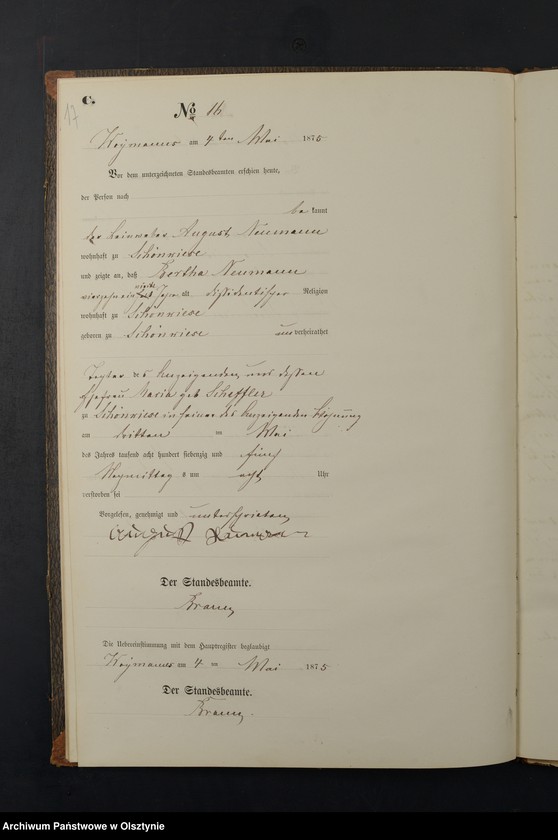 C.
17
No 16
Keymanns am 4 ten Mai 1875
Vor dem unterzeichneten Standesbeamten erschien heute,
der Person nach
bekannt
der Leinweber August Neumann
wohnhaft zu Schönwiese
und zeigte an, daß Bertha Neumann
alt dissidentischer Religion
wohnhaft zu Schönwiese
geboren zu Schönwiese unverheirathet
Tochter des Anzeigenden und dessen
Ehefrau Maria geb Scheffler
zu Schönwiese in seiner des Anzeigenden Wohnung
am dritten Mai
des Jahres tausend acht hundert siebenzig und fünf
Nachmittag s um acht Uhr
verstorben sei
Vorgelesen, genehmigt und unterschrieben
August Neumann
Der Standesbeamte.
Die Uebereinstimmung mit dem Hauptregister beglaubigt
Keymanns am 4 ten Mai 1875
Der Standesbeamte.
Archiwum Państwowe w Olsztynie